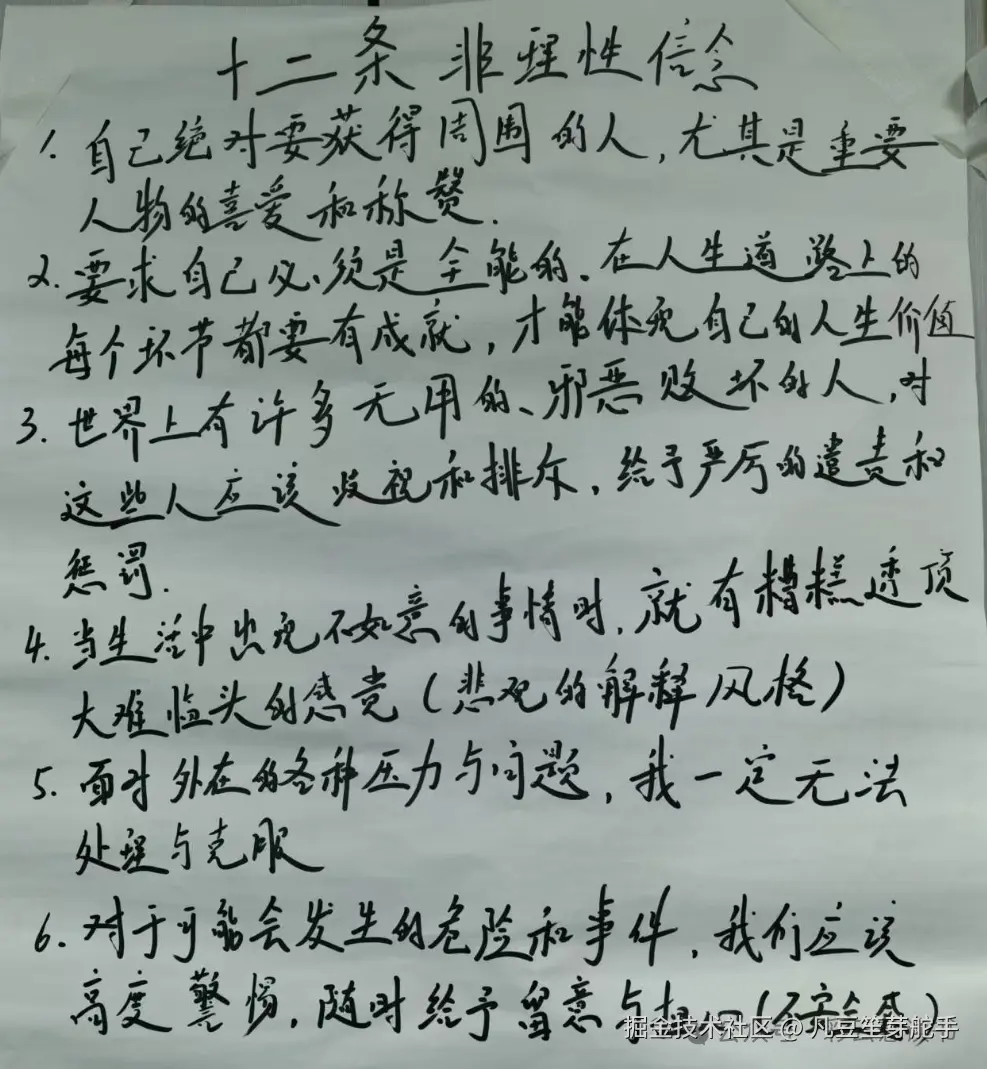 十二条非理性信念
1. 自己绝对要获得周围的人，尤其是重要
人物的喜爱和称赞.
2. 要求自己必须是全能的、在人生道路上的
每个环节都要有成就，才能体现自己的人生价值
3. 世界上有许多无用的、邪恶败坏的人，对
这些人应该歧视和排斥，给予严厉的谴责和
惩罚.
4. 当生活中出现不如意的事情时，就有糟糕透顶
大难临头的感觉（悲观的解释风格）
5. 面对外在的各种压力与问题，我一定无法
处理与克服
6. 对于可能会发生的危险和事件，我们应该
高度警惕，随时给予留意与担心（不安全感）
掘金技术社区 @ 凡豆笙芽舵手